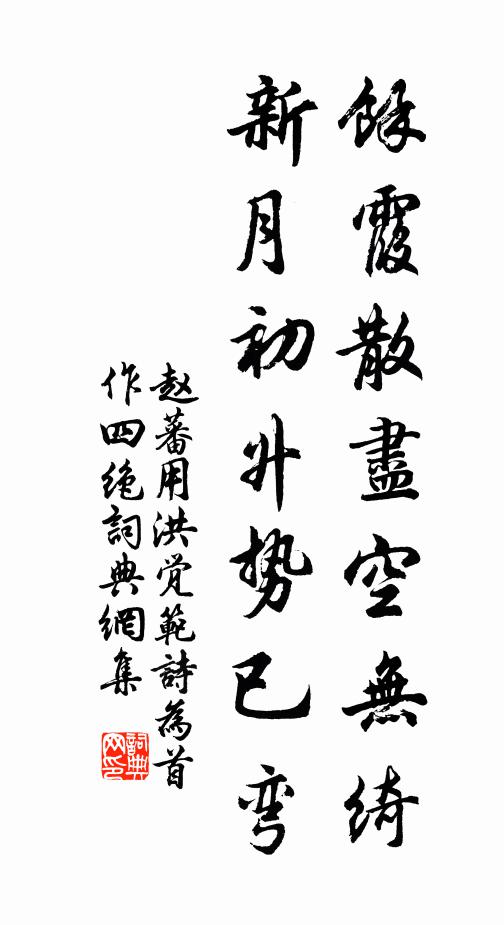 餘霞散盡空無綺
新月初升勢已彎
赵蕃用洪觉範詩為首
作四绝詞典網集
詞典網印